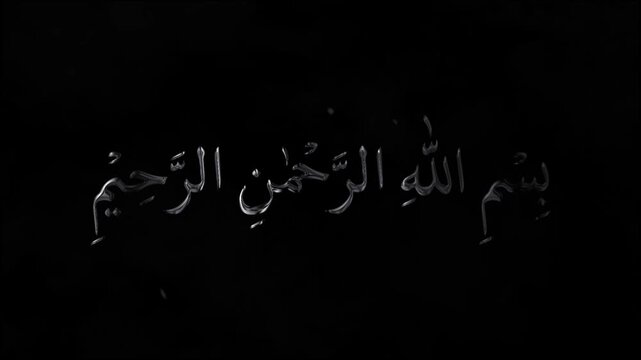 بِسْمِ اللَّهِ الرَّحْمَٰنِ الرَّحِيْمِ